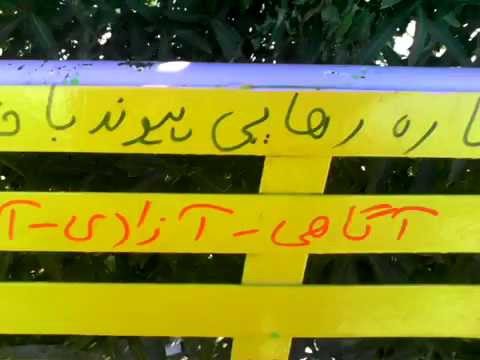 ره رهایی پیوند با
آگاهی - آزادی - آ